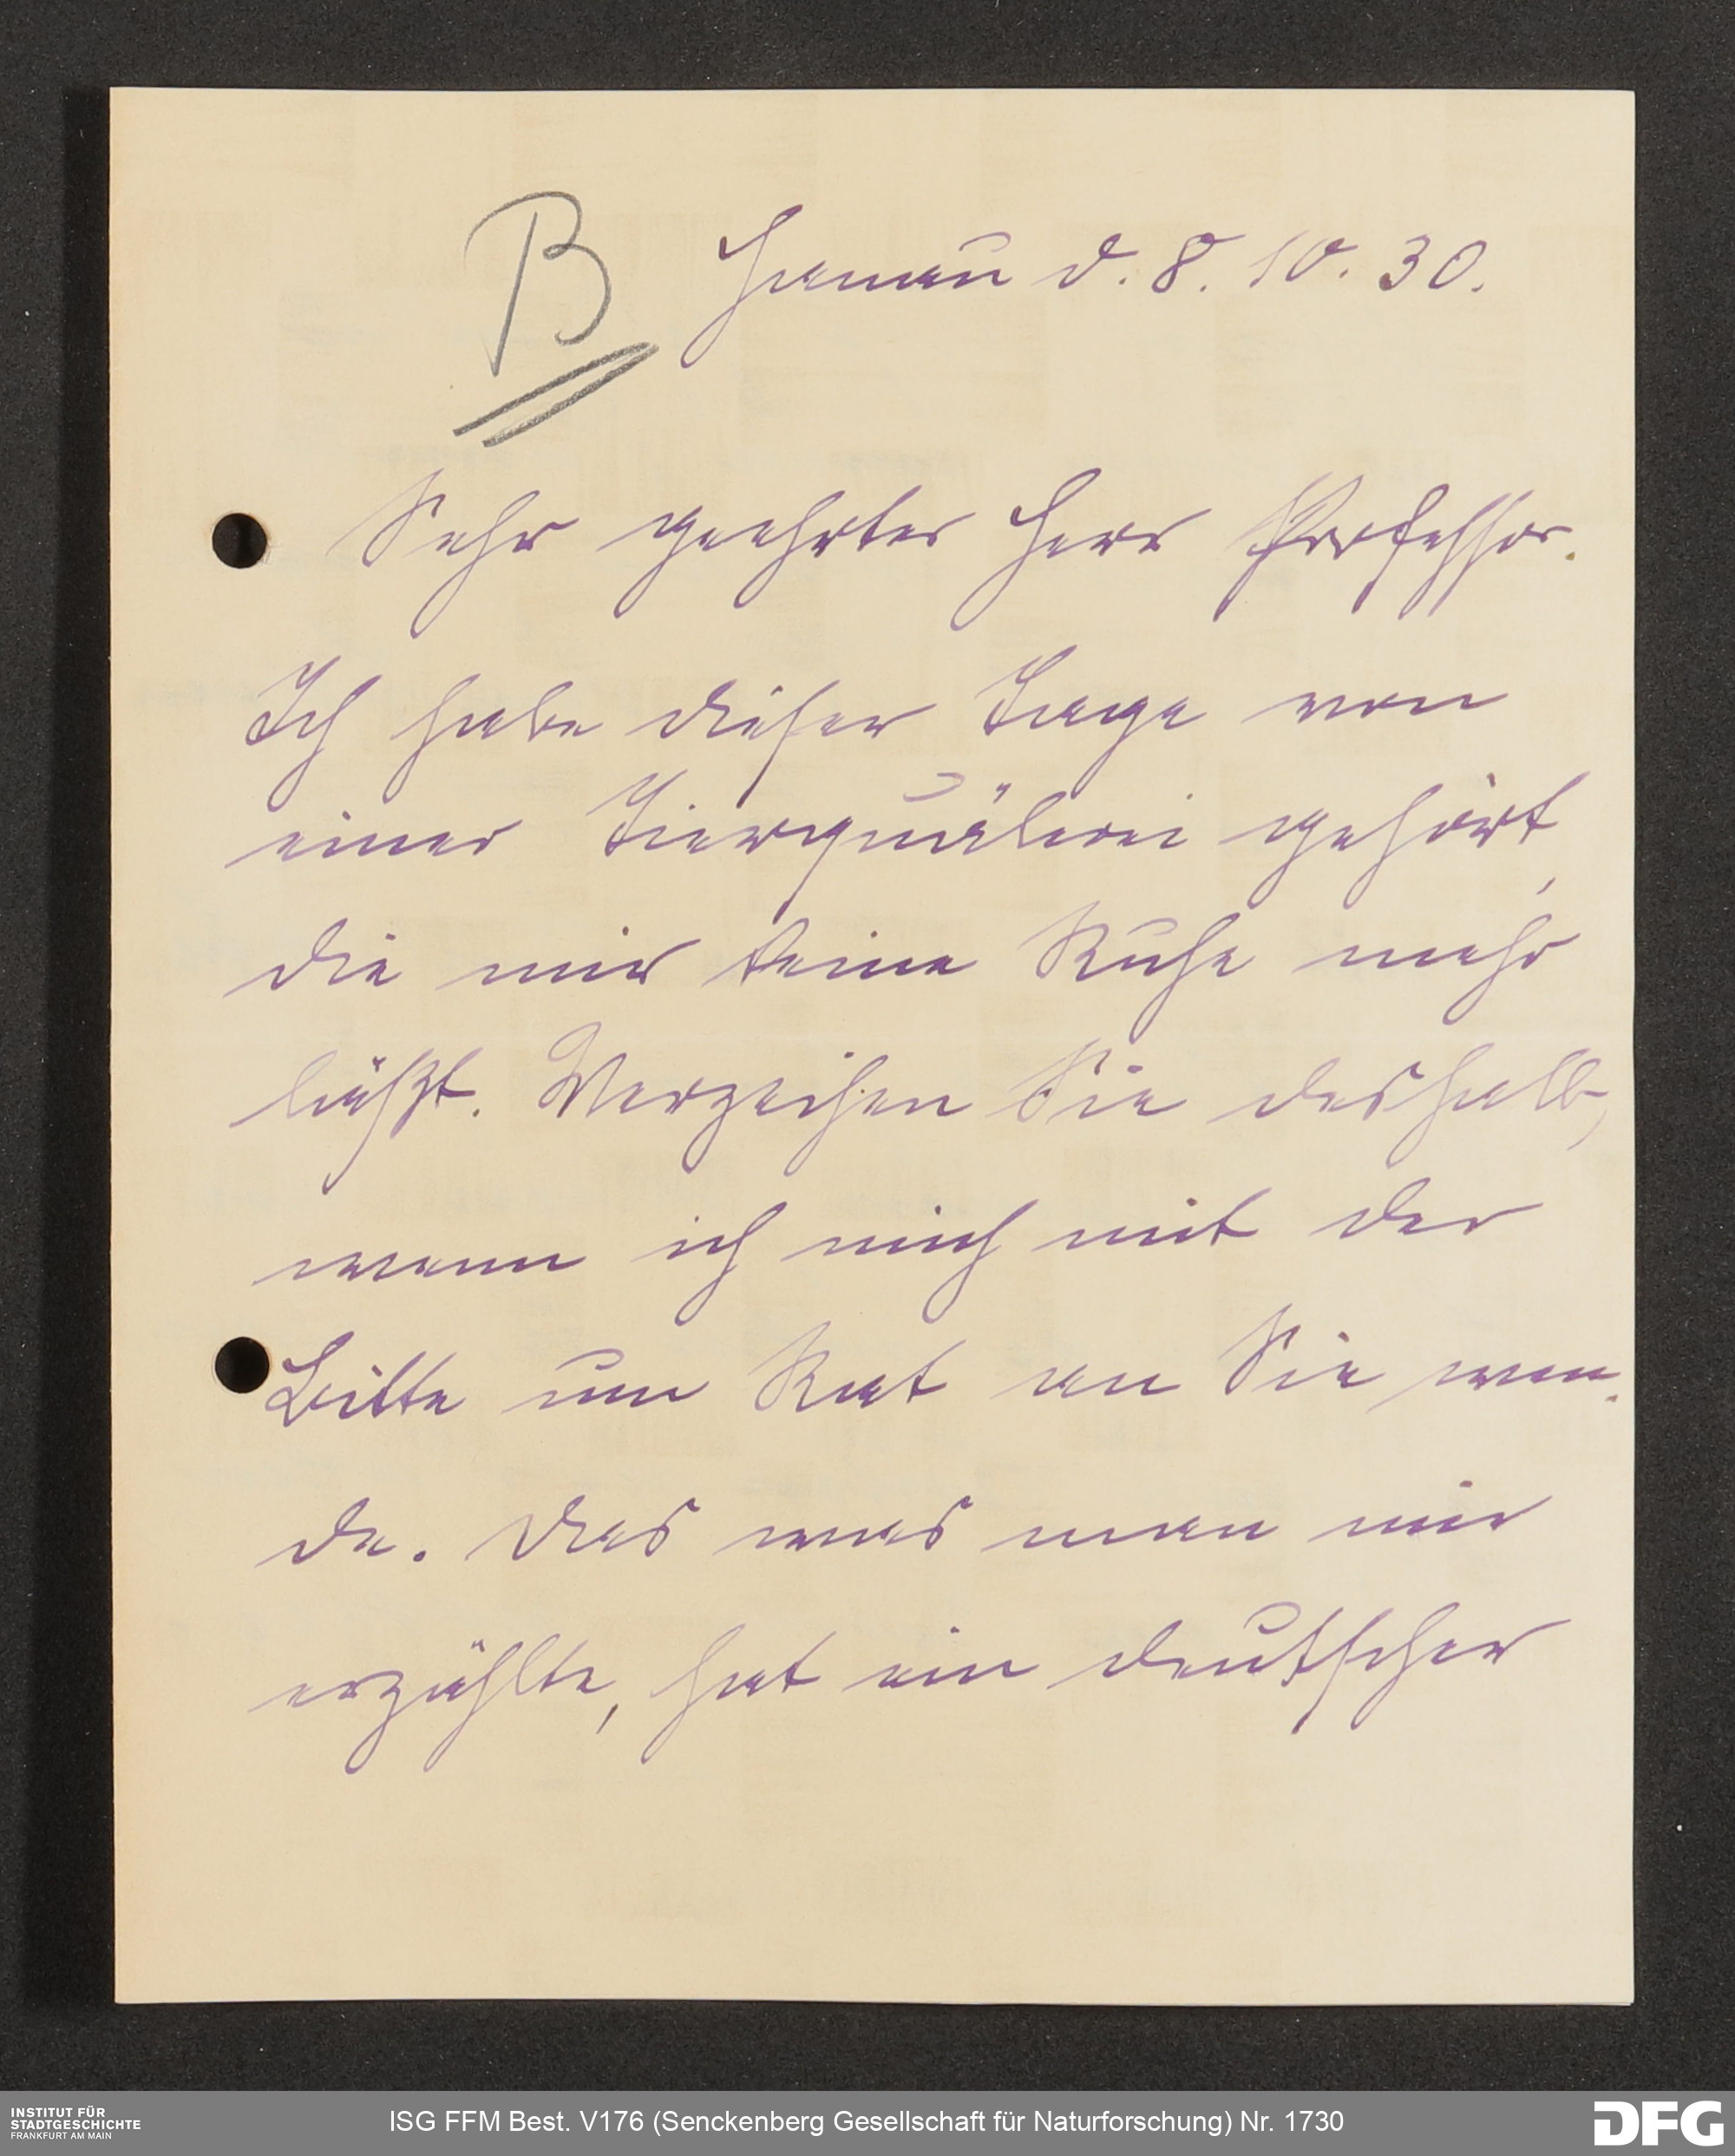 B
Hanau d. 8. 10. 30.
Sehr geehrter Herr Professor.
Ich habe dieser Tage von
einer Tierquälerei gehört,
die mir keine Ruhe mehr
läßt. Verzeihen Sie deshalb,
wenn ich mich mit der
Bitte um Rat an Sie wen-
de. Das was man mir
erzählte, hat ein deutscher
INSTITUT FÜR
STADTGESCHICHTE
FRANKFURT AM MAIN
ISG FFM Best. V176 (Senckenberg Gesellschaft für Naturforschung) Nr. 1730
DFG